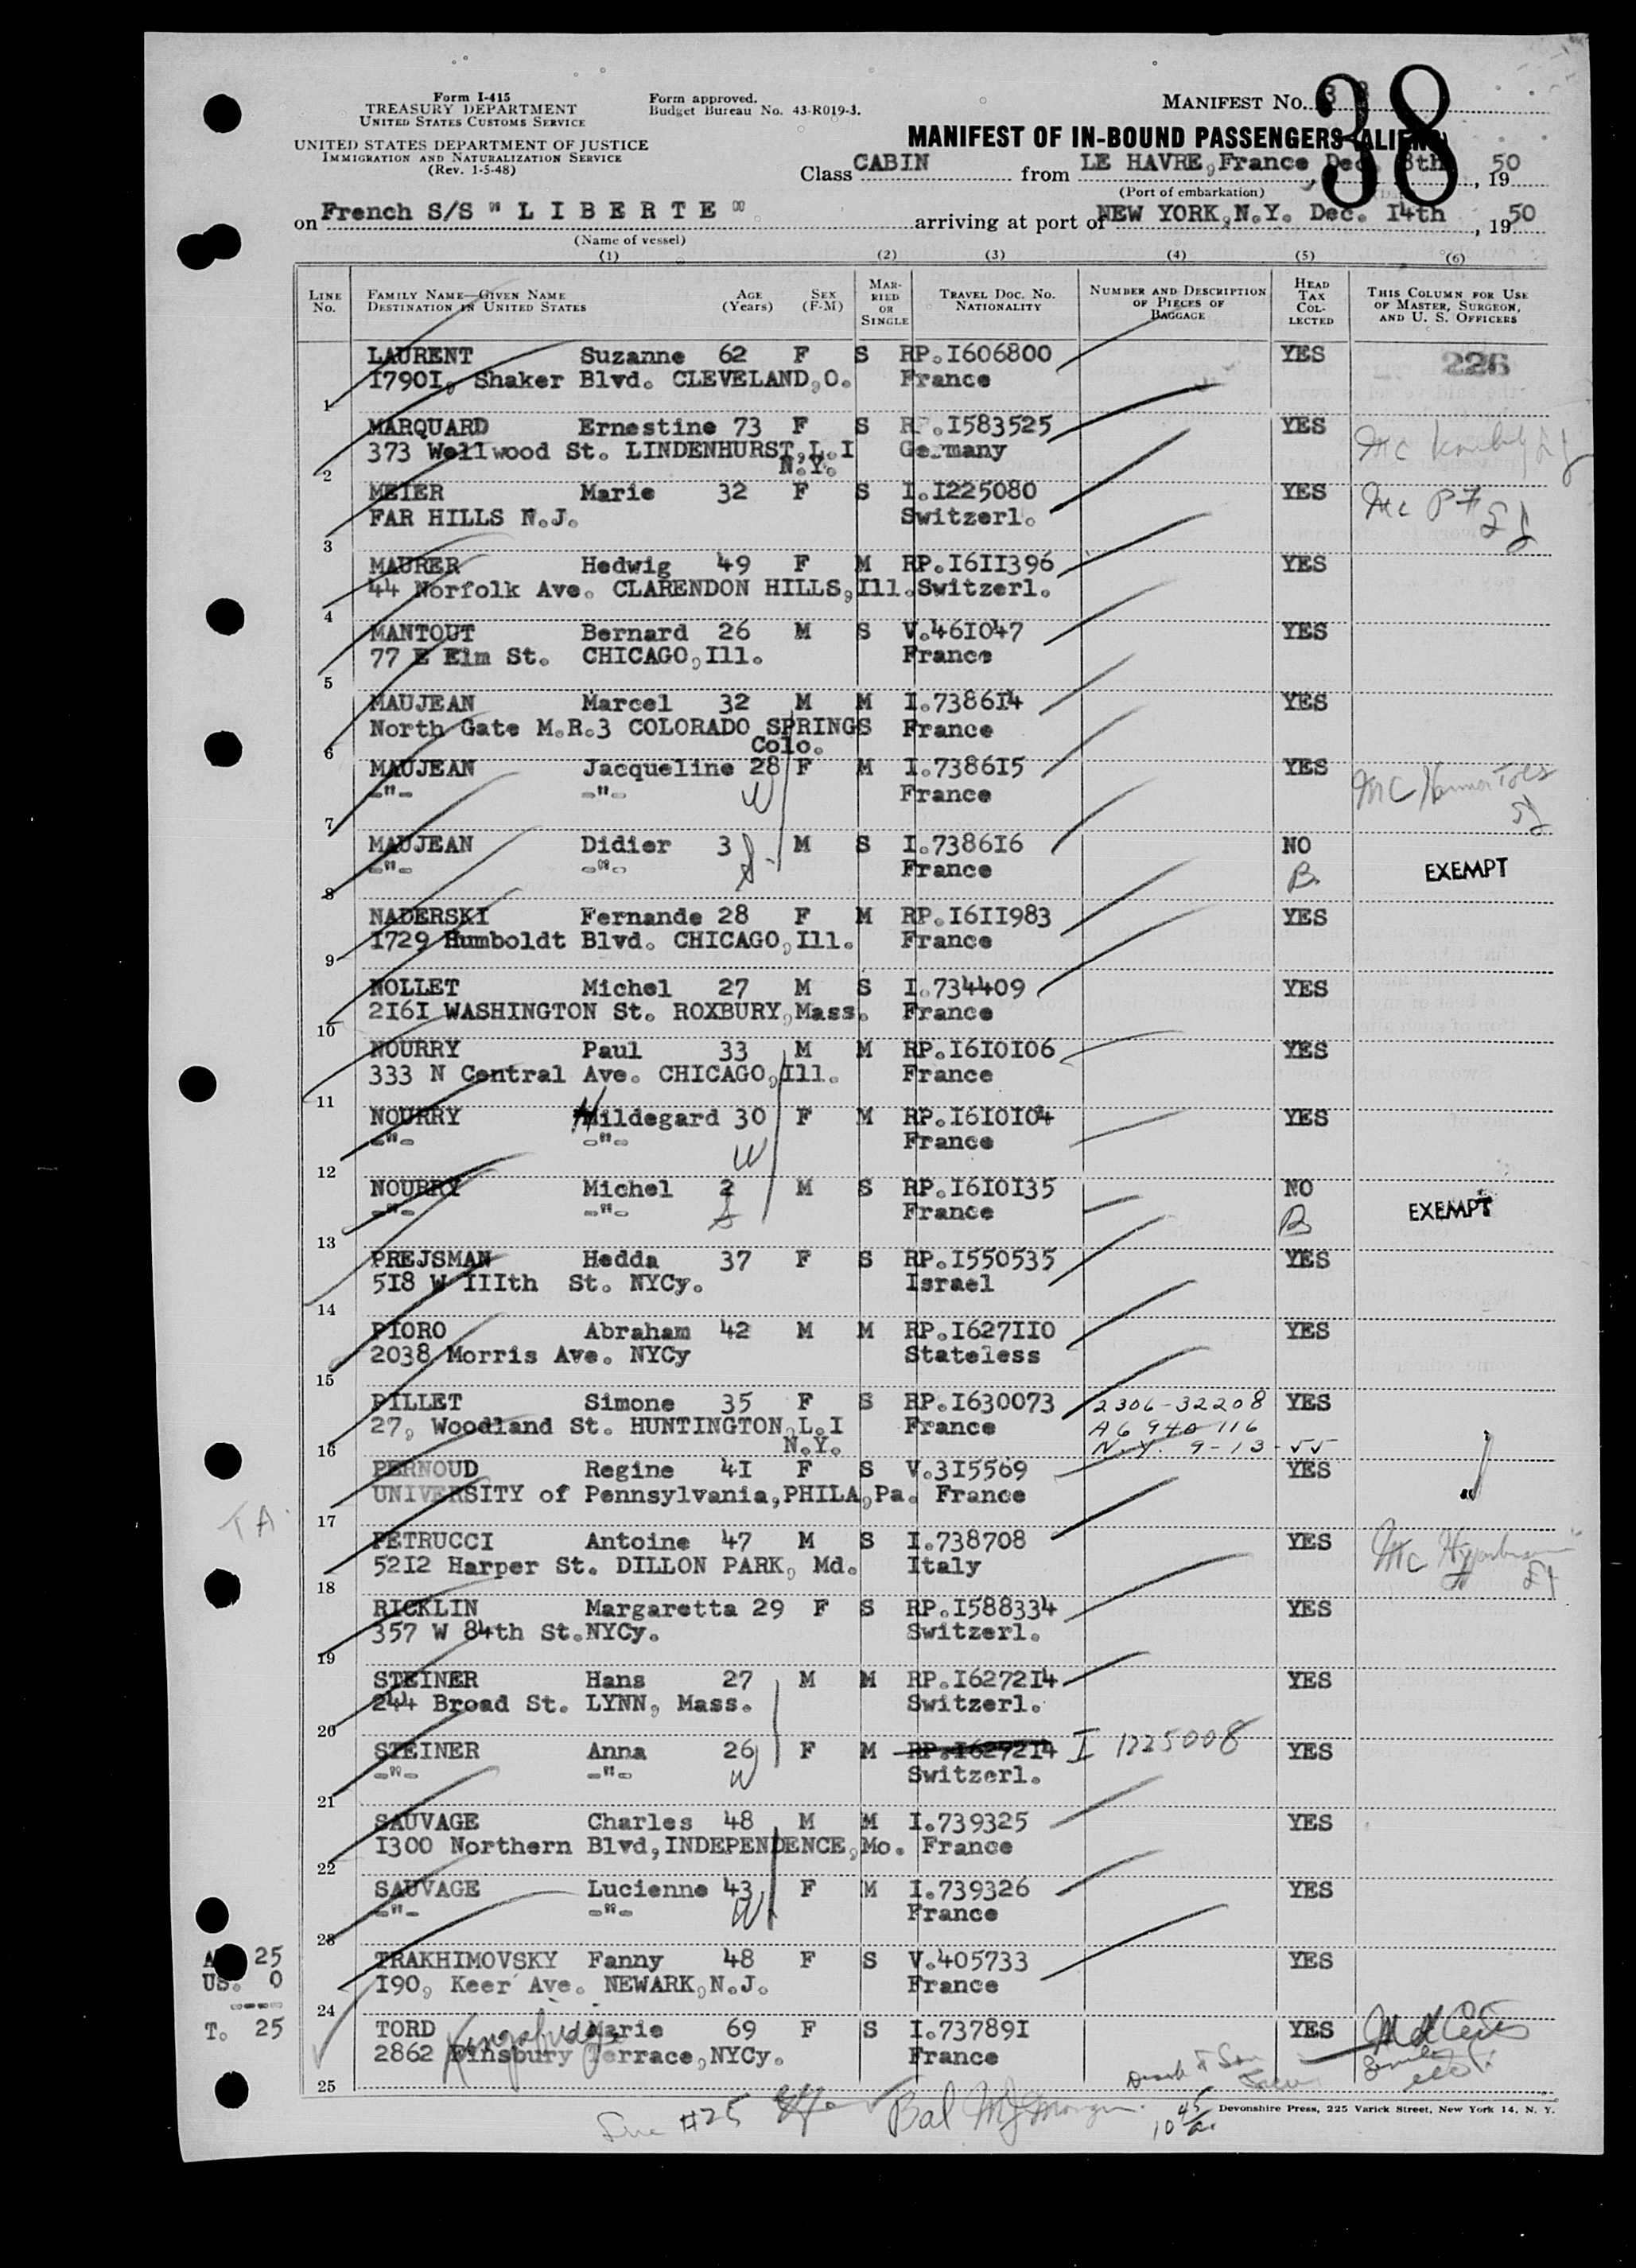 Form I-415
TREASURY DEPARTMENT
UNITED STATES CUSTOMS SERVICE
UNITED STATES DEPARTMENT OF JUSTICE
IMMIGRATION AND NATURALIZATION SERVICE
(Rev. 1-5-48)
Form approved.
Budget Bureau No. 43-R019-3.
MANIFEST No. 38
MANIFEST OF IN-BOUND PASSENGERS (ALIENS)
Class CABIN from LE HAVRE, France Dec. 8th, 1950
(Port of embarkation)
on French S/S " L I B E R T E " arriving at port of NEW YORK, N.Y. Dec. I4th, 1950
(Name of vessel)
(1) (2) (3) (4) (5) (6)
LINE No. FAMILY NAME—GIVEN NAME DESTINATION IN UNITED STATES AGE (Years) SEX (F-M) MARRIED OR SINGLE TRAVEL DOC. NO. NATIONALITY NUMBER AND DESCRIPTION OF PIECES OF BAGGAGE HEAD TAX COLLECTED THIS COLUMN FOR USE OF MASTER, SURGEON, AND U. S. OFFICERS
LAURENT Suzanne 62 F S RP.I606800 YES 226
I790I, Shaker Blvd. CLEVELAND,O. France
1
MARQUARD Ernestine 73 F S RP.I583525 YES
373 Wellwood St. LINDENHURST,L.I Germany
N.Y.
2
MEIER Marie 32 F S I.I225080 YES
FAR HILLS N.J. Switzerl.
3
MAURER Hedwig 49 F M RP.I6II396 YES
44 Norfolk Ave. CLARENDON HILLS,Ill. Switzerl.
4
MANTOUT Bernard 26 M S V.46I047 YES
77 E Elm St. CHICAGO,Ill. France
5
MAUJEAN Marcel 32 M M I.7386I4 YES
North Gate M.R.3 COLORADO SPRINGS France
Colo.
6
MAUJEAN Jacqueline 28 F M I.7386I5 YES
-"- -"- W France
7
MAUJEAN Didier 3 M S I.7386I6 NO
-"- -"- France B. EXEMPT
8
NADERSKI Fernande 28 F M RP.I6II983 YES
I729 Humboldt Blvd. CHICAGO,Ill. France
9
NOLLET Michel 27 M S I.734409 YES
2I6I WASHINGTON St. ROXBURY,Mass. France
10
NOURRY Paul 33 M M RP.I6I0I06 YES
333 N Central Ave. CHICAGO,Ill. France
11
NOURRY Hildegard 30 F M RP.I6I0I04 YES
-"- -"- W France
12
NOURRY Michel 2 M S RP.I6I0I35 NO
-"- -"- France B EXEMPT
13
PREJSMAN Hedda 37 F S RP.I550535 YES
5I8 W IIIth St. NYCy. Israel
14
PIORO Abraham 42 M M RP.I627II0 YES
2038 Morris Ave. NYCy Stateless
15
PILLET Simone 35 F S RP.I630073 2306-32208 YES
27, Woodland St. HUNTINGTON,L.I France A6 940 116
N.Y. N.Y. 9-13-55
16
PERNOUD Regine 4I F S V.3I5569 YES
UNIVERSITY of Pennsylvania,PHILA,Pa. France
17
TA.
PETRUCCI Antoine 47 M S I.738708 YES
52I2 Harper St. DILLON PARK, Md. Italy
18
RICKLIN Margaretta 29 F S RP.I588334 YES
357 W 84th St.NYCy. Switzerl.
19
STEINER Hans 27 M M RP.I6272I4 YES
244 Broad St. LYNN, Mass. Switzerl.
20
STEINER Anna 26 F M RP.I6272I4 I 1225008 YES
-"- -"- W Switzerl.
21
SAUVAGE Charles 48 M M I.739325 YES
I300 Northern Blvd,INDEPENDENCE,Mo. France
22
SAUVAGE Lucienne 43 F M I.739326 YES
-"- -"- W France
23
TRAKHIMOVSKY Fanny 48 F S V.405733 YES
I90, Keer Ave. NEWARK,N.J. France
24
A 25
US. 0
----
T. 25
TORD Marie 69 F S I.73789I YES
2862 Finsbury Terrace,NYCy. France
Kingsbridge
25
#25 Bal
10 45/a.
Devonshire Press, 225 Varick Street, New York 14, N. Y.